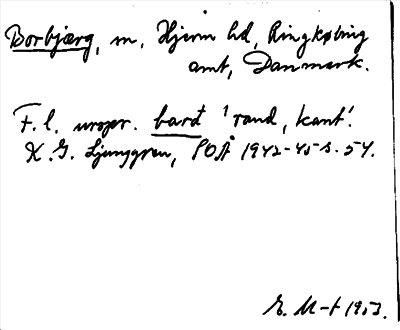 Borbjærg, m, Hjerm hd, Ringkøbing
amt, Danmark.
F. l. urspr. barð 'rand, kant'.
K. G. Ljunggren, SOÅ 1942-45 s. 54.
E. M-t 1953.